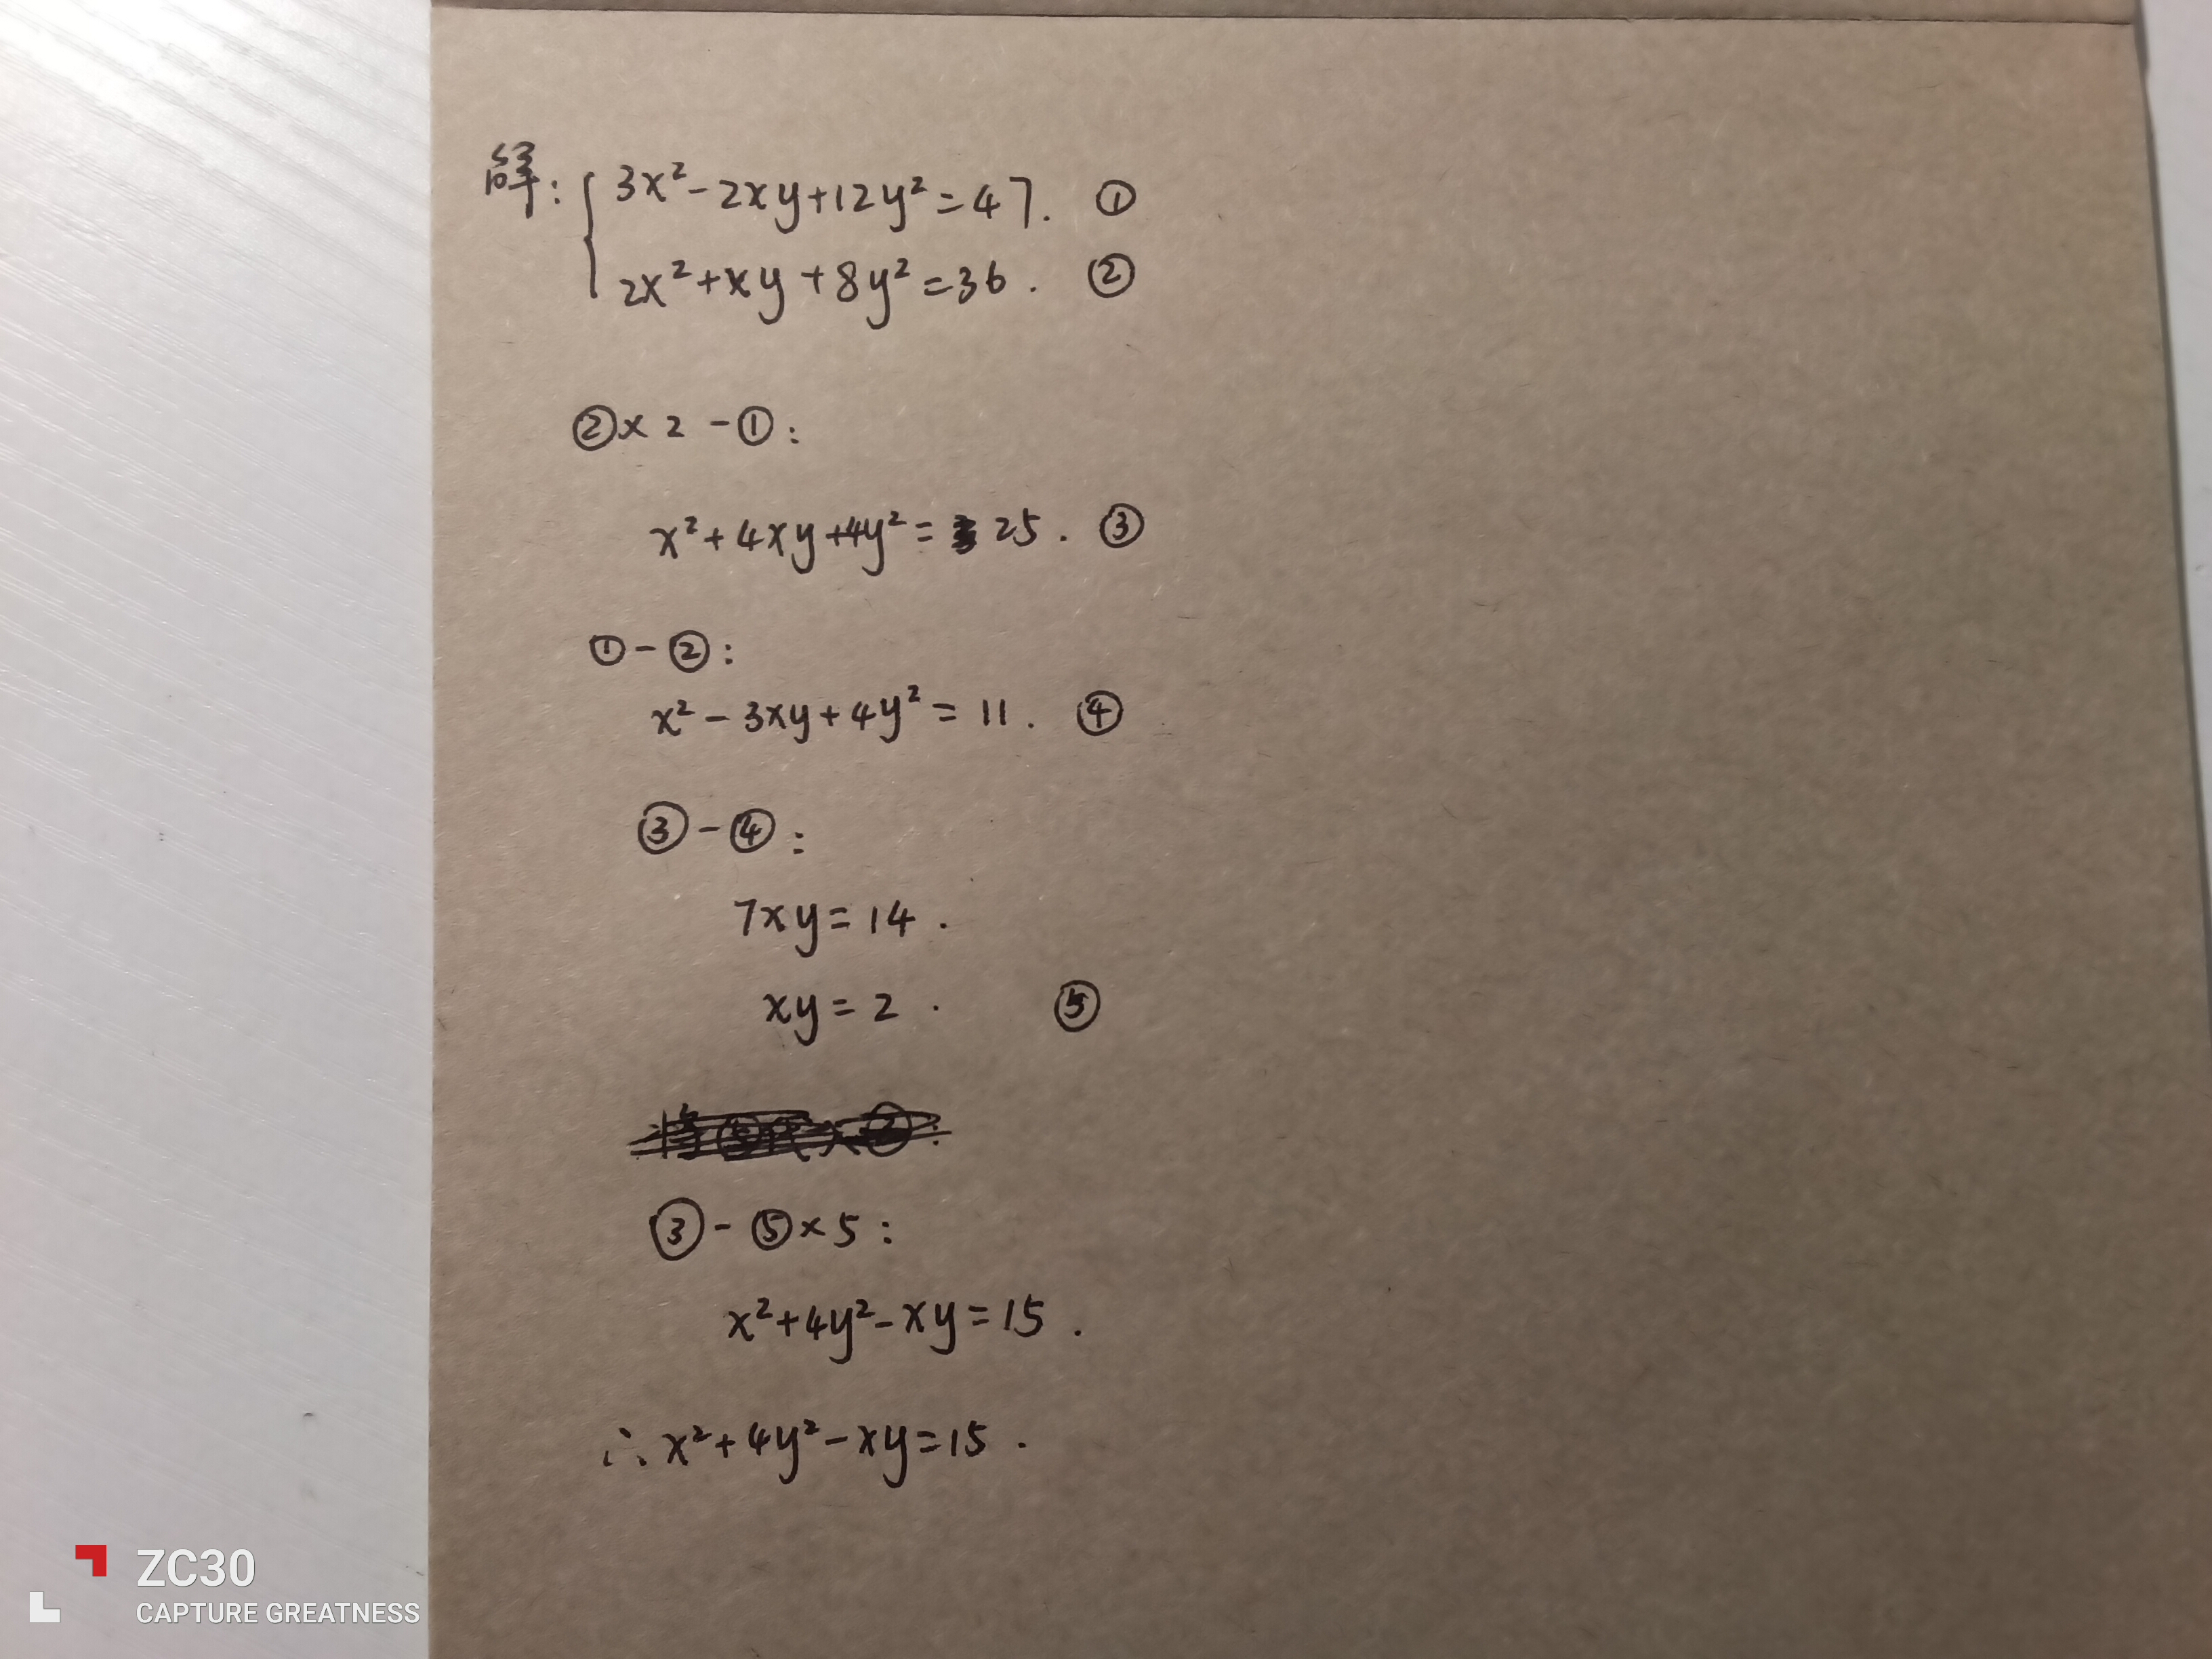 解: { 3x²-2xy+12y²=47. ①
2x²+xy+8y²=36. ②
②×2-①:
x²+4xy+4y²= 25. ③
①-②:
x²-3xy+4y²=11. ④
③-④:
7xy=14.
xy=2. ⑤
③-⑤×5:
x²+4y²-xy=15.
∴x²+4y²-xy=15.
ZC30
CAPTURE GREATNESS